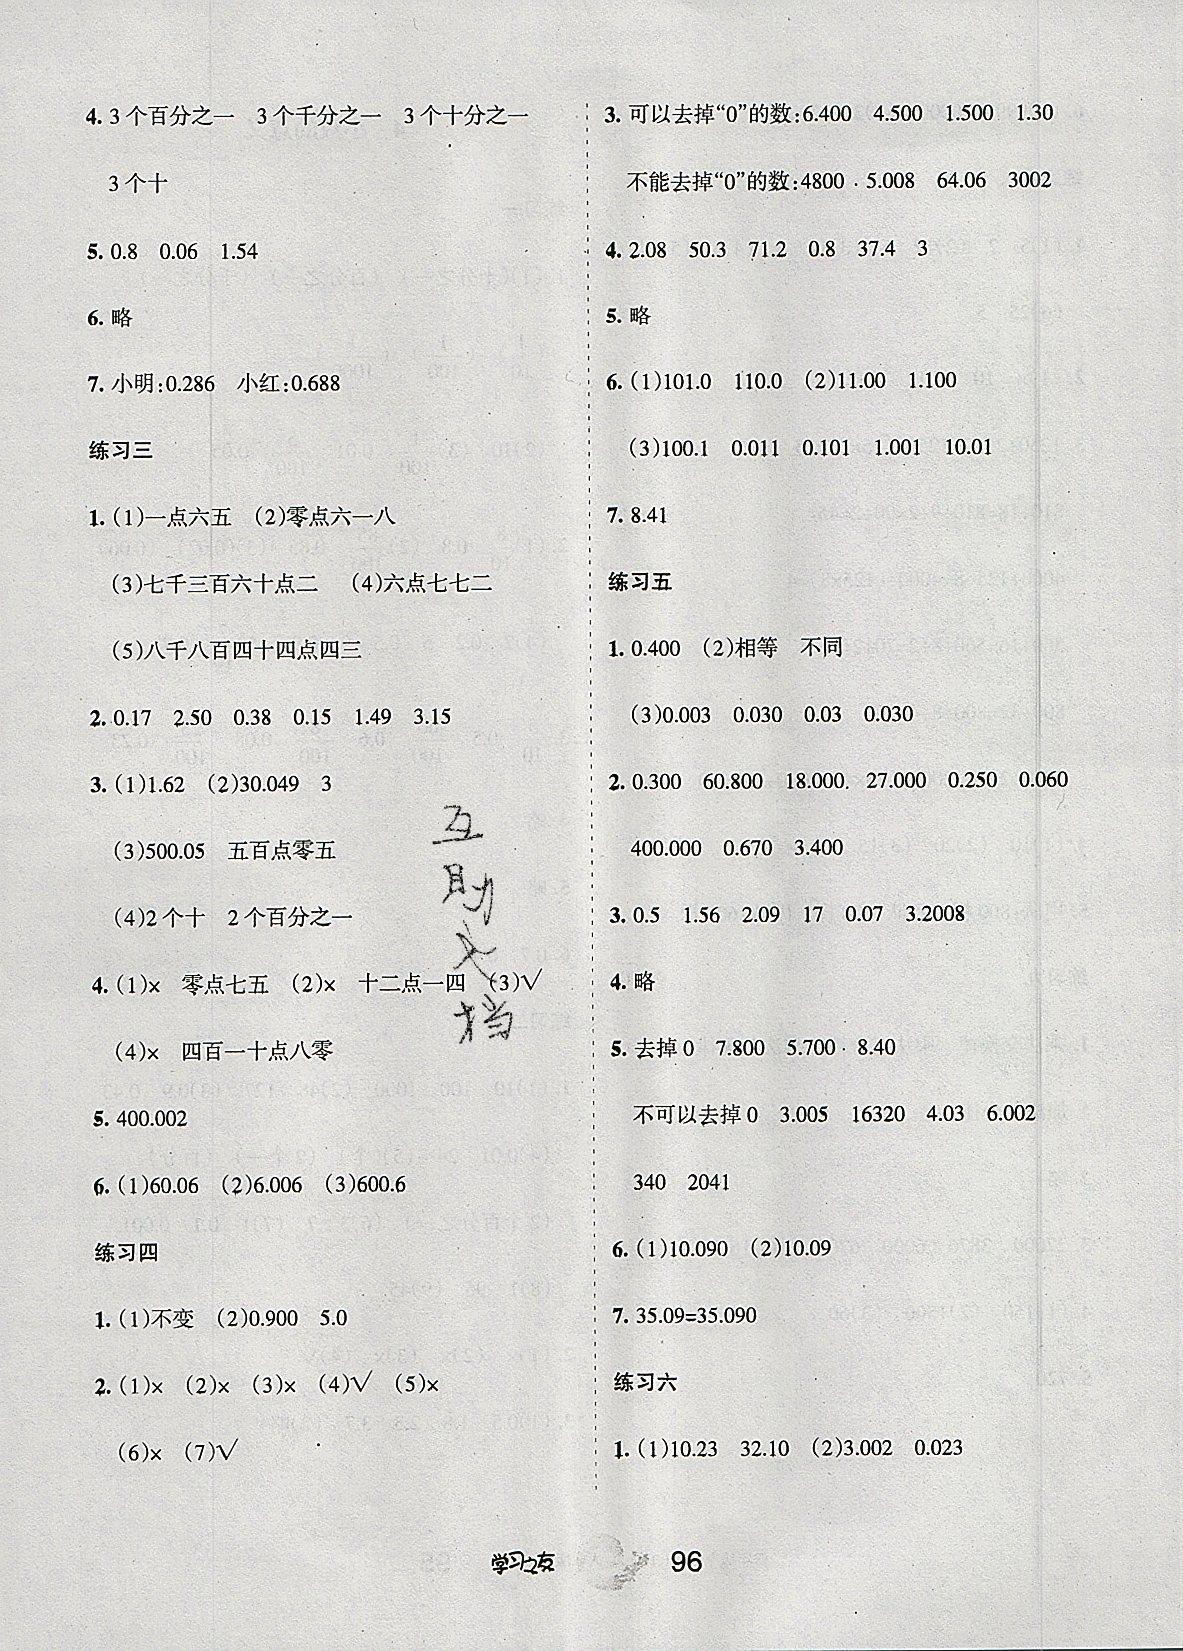 4. 3个百分之一 3个千分之一 3个十分之一
3个十
5. 0.8 0.06 1.54
6. 略
7. 小明:0.286 小红:0.688
练习三
1. (1)一点六五 (2)零点六一八
(3)七千三百六十点二 (4)六点七七二
(5)八千八百四十四点四三
2. 0.17 2.50 0.38 0.15 1.49 3.15
3. (1)1.62 (2)30.049 3
(3)500.05 五百点零五
(4)2个十 2个百分之一
4. (1)× 零点七五 (2)× 十二点一四 (3)√
(4)× 四百一十点八零
5. 400.002
6. (1)60.06 (2)6.006 (3)600.6
练习四
1. (1)不变 (2)0.900 5.0
2. (1)× (2)× (3)× (4)√ (5)×
(6)× (7)√
互
助
文
档
3. 可以去掉“0”的数:6.400 4.500 1.500 1.30
不能去掉“0”的数:4800 5.008 64.06 3002
4. 2.08 50.3 71.2 0.8 37.4 3
5. 略
6. (1)101.0 110.0 (2)11.00 1.100
(3)100.1 0.011 0.101 1.001 10.01
7. 8.41
练习五
1. 0.400 (2)相等 不同
(3)0.003 0.030 0.03 0.030
2. 0.300 60.800 18.000 27.000 0.250 0.060
400.000 0.670 3.400
3. 0.5 1.56 2.09 17 0.07 3.2008
4. 略
5. 去掉0 7.800 5.700 8.40
不可以去掉0 3.005 16320 4.03 6.002
340 2041
6. (1)10.090 (2)10.09
7. 35.09=35.090
练习六
1. (1)10.23 32.10 (2)3.002 0.023
学习之友 96